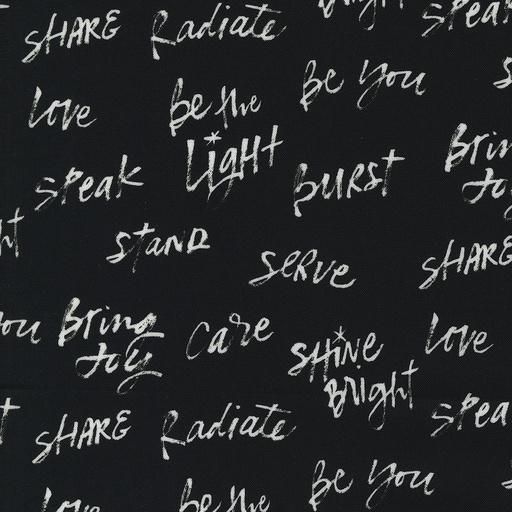 Bright
SHARE Radiate speak
Be You
Love Be the
LIGHT
Bring
Joy
speak BURST
STAND
SERVE SHARE
You Bring Care Love
Joy SHINE
BRIGHT
SHARE Radiate speak
Be You
Love Be the